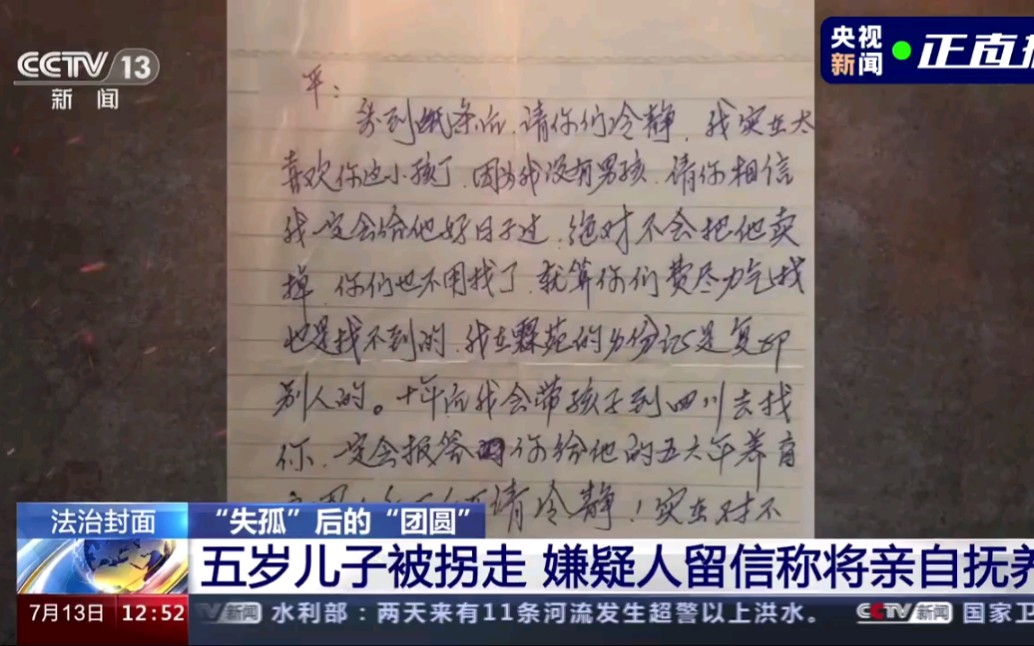 CCTV 13
新闻
央视
新闻
正直播
平:
务到纸条后,请你们冷静,我实在太
喜欢你这小孩了,因为我没有男孩,请你相信
我一定会给他好日子过,绝对不会把他卖
掉,你们也不用找了,就算你们费尽力气找
也是找不到的,我在霖苑的身份证是复印
别人的。十年后我会带孩子到四川去找
你,一定会报答你给他的五六年养育
请冷静!实在对不
法治封面
“失孤”后的“团圆”
五岁儿子被拐走 嫌疑人留信称将亲自抚养
7月13日 12:52
TV新闻 水利部:两天来有11条河流发生超警以上洪水。 CCTV新闻 国家卫